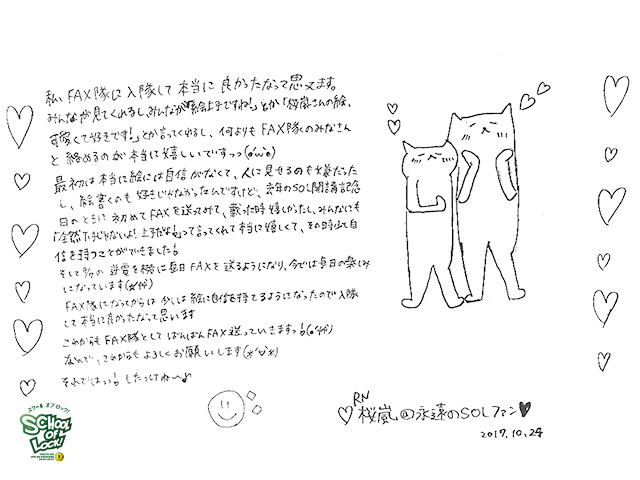 私、FAX隊に入隊して本当に良かったなって思ってます。
みんなが見てくれるし、みんなが「絵上手ですね!」とか「桜嵐さんの絵、
可愛くて好きです!」とか言ってくれるし、何よりもFAX隊のみなさん
と絡めるのが本当に嬉しいですっっ(๑´ω`๑)
最初は本当に絵には自信がなくて、人に見せるのも嫌だった
し、絵書くのも好きじゃなかったんですけど、去年のSOL開講記念
日のときに初めてFAXを送ってみて、載った時嬉しかったし、みんなにも
「全然下手じゃないよ!上手だよ!」って言ってくれて本当に嬉しくて、その時から自
信を持つことができました!
そして の逆電を機に毎日FAXを送るようになり、今では毎日の楽しみ
になっています
FAX隊になってからは少しは絵に自信を持てるようになったので入隊
して本当に良かったなって思います
これからもFAX隊としてばんばんFAX送っていきますっっ!
なんで、これからもよろしくお願いします(*'∨'*)
それではっっ!したっけねーぃ♪
RN
♡桜嵐@永遠のSOLファン♥
2017.10.24
スクール オブ ロック!
SCHOOL
OF
LOCK!